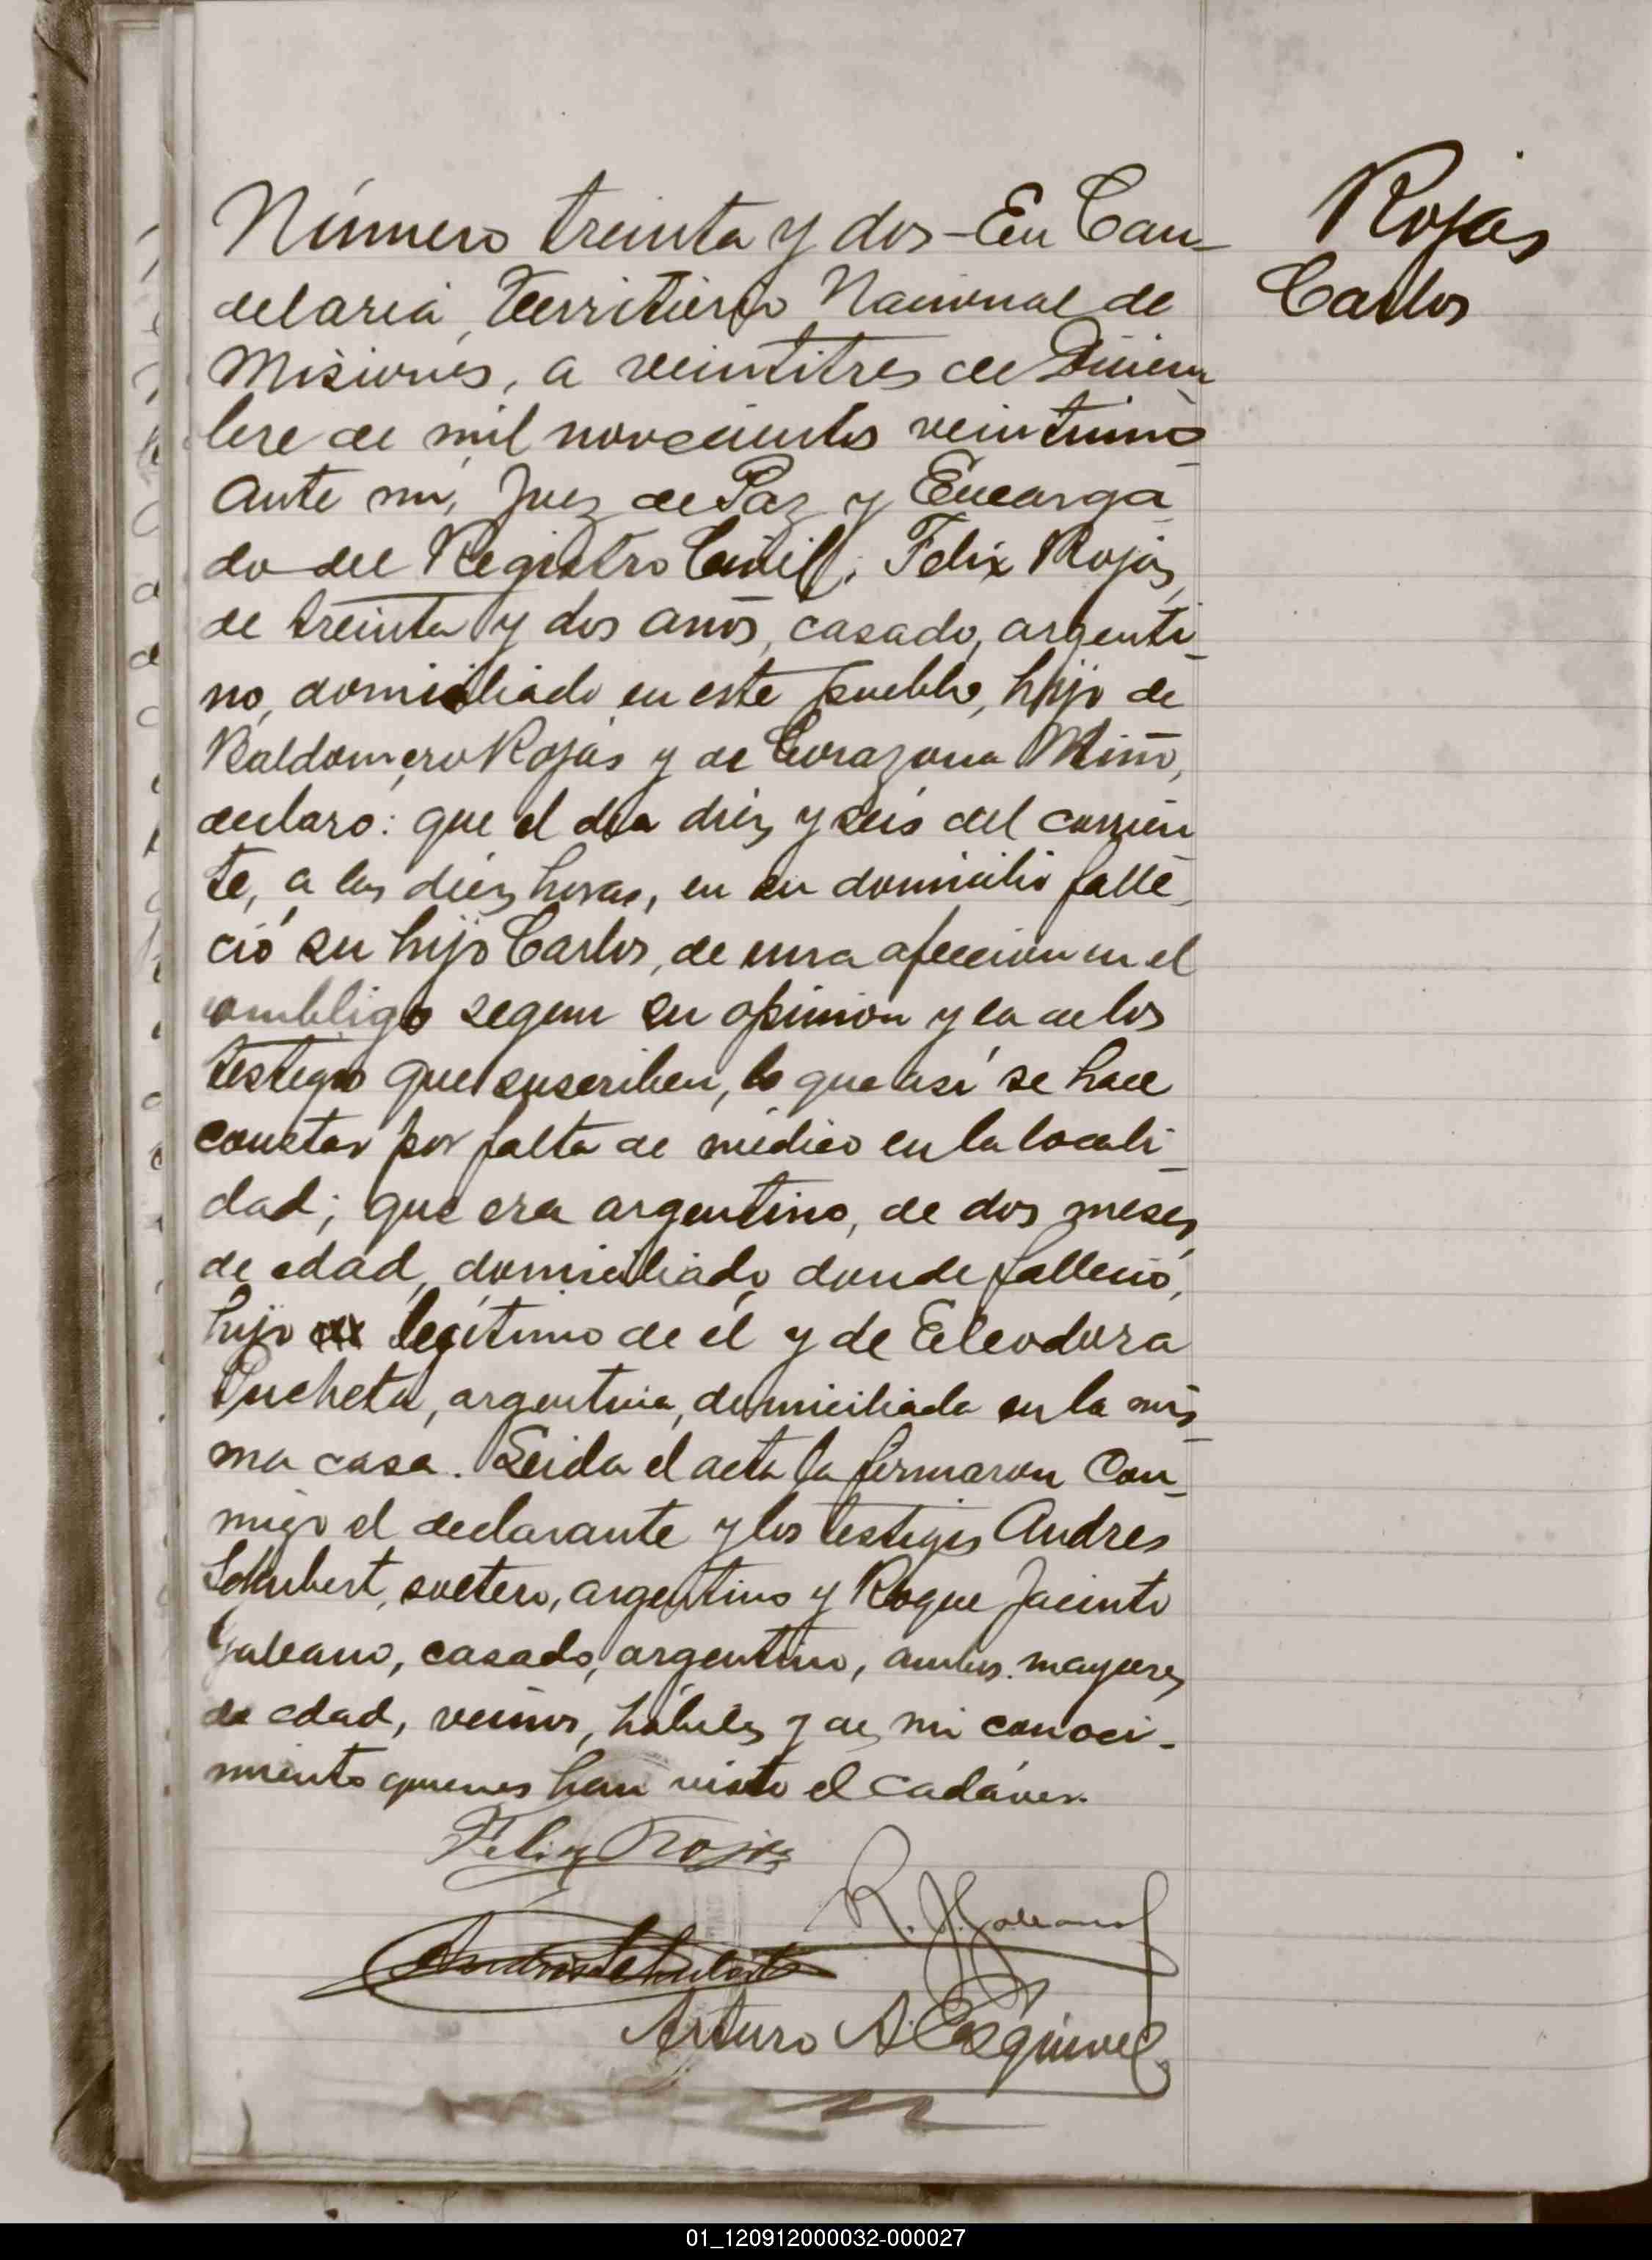 Rojas
Carlos
Número treinta y dos - En Can-
delaria, Territorio Nacional de
Misiones, a veintitres de Diciem
bre de mil novecientos veintiuno
ante mí, Juez de Paz y Encarga
do del Registro Civil; Felix Rojas,
de treinta y dos años, casado, argenti
no, domiciliado en este pueblo, hijo de
Baldomero Rojas y de Corazona Miño,
declaró: que el día diez y seis del corrien
te, a las diez horas, en su domicilio falle
ció su hijo Carlos, de una afeccion en el
ombligo segun su opinion y la de los
testigos que suscriben, lo que así se hace
constar por falta de médico en la locali
dad; que era argentino, de dos meses
de edad, domiciliado donde falleció,
hijo legítimo de él y de Eleodora
Pucheta, argentina, domiciliada en la mis
ma casa. Leida el acta la firmaron Con-
migo el declarante y los testigos Andres
Schubert, soltero, argentino y Roque Jacinto
Galeano, casado, argentino, ambos mayores
de edad, vecinos, hábiles y de mi conoci-
miento quienes han visto el cadáver.
Felix Rojas
R. J. Galeano
Andres Schubert
Arturo A. Esquivel
01_120912000032-000027